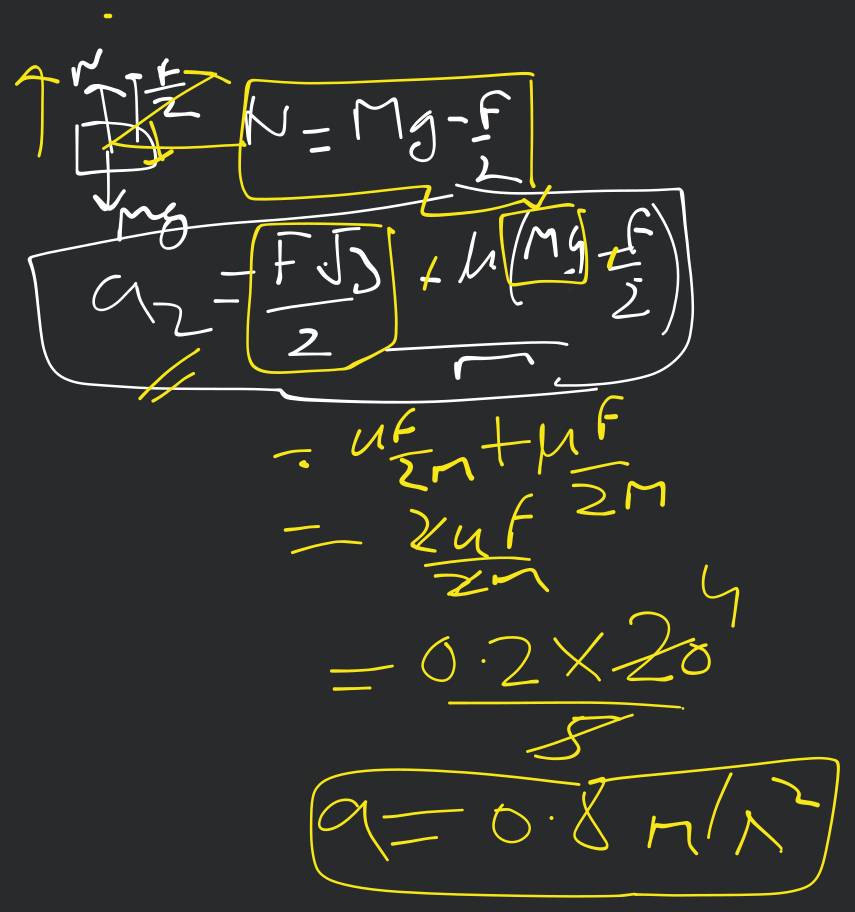 N F/2
N = Mg - F/2
Mg
a₂ = F√3/2 + μ(Mg - F/2)
m
= μF/2m + μF/2M
= 2μF/2m
= 0.2 × 20 4
5
a = 0.8 m/s²